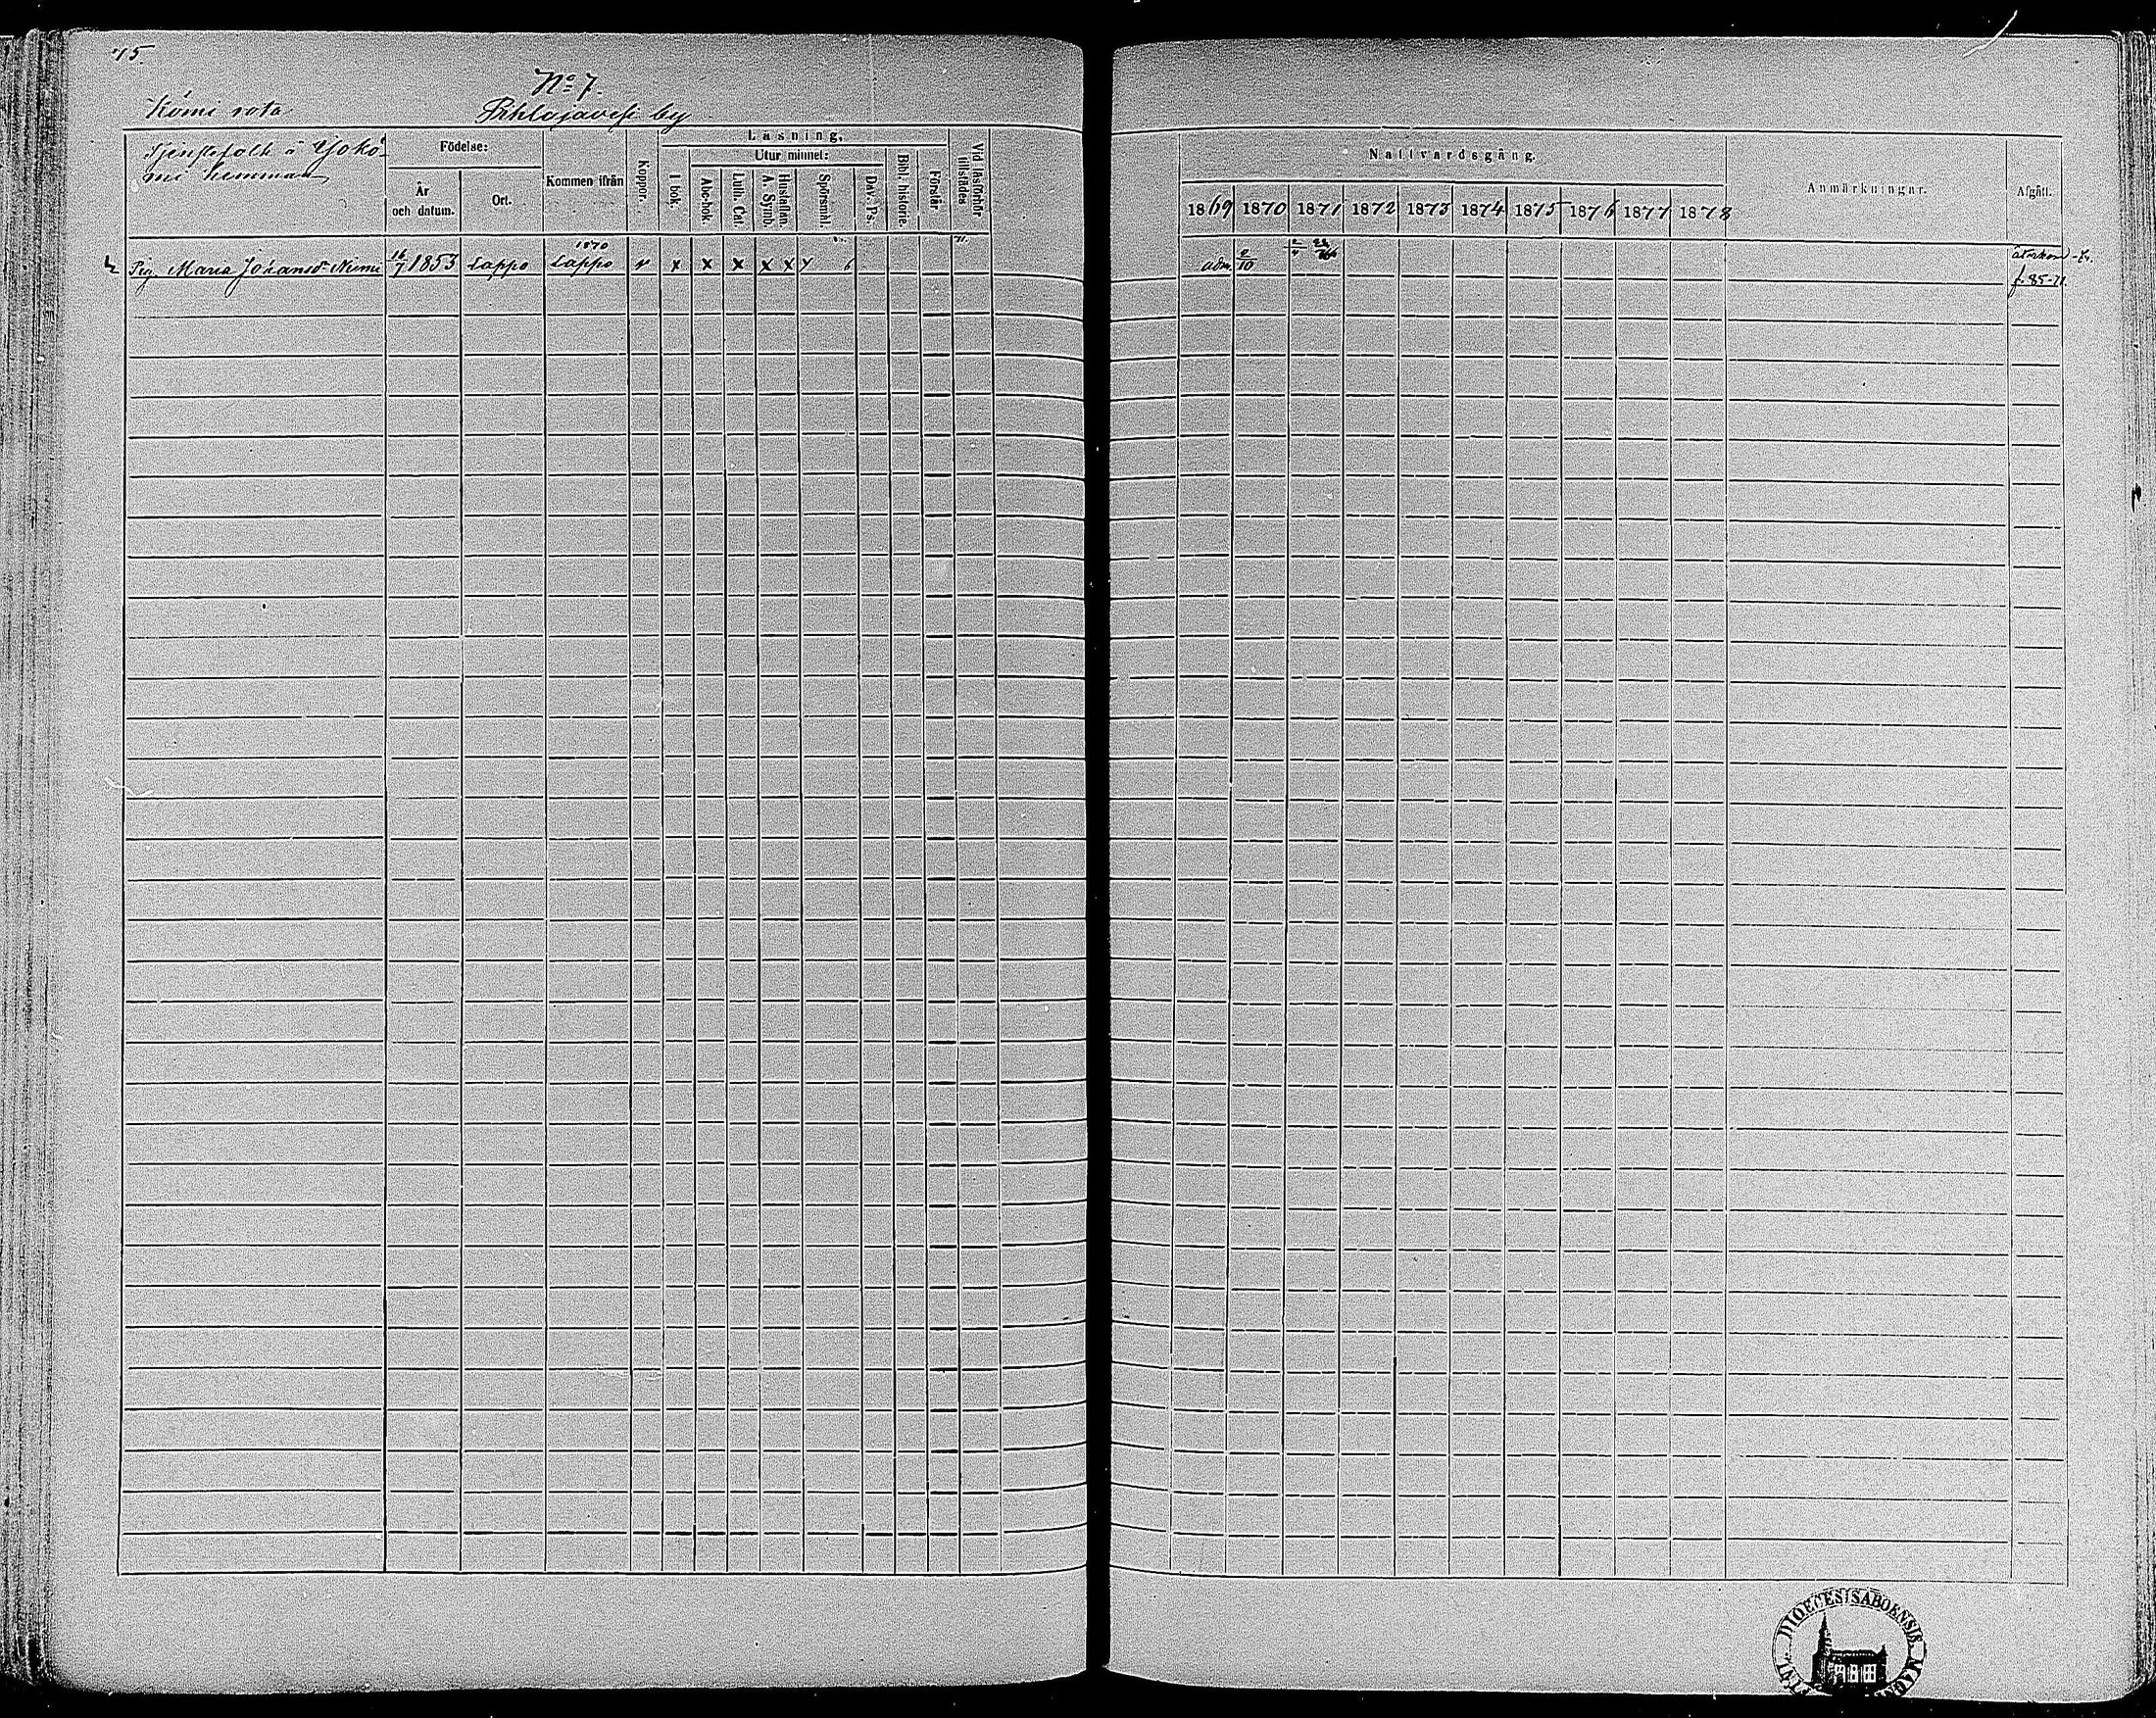 75.
Nº 7.
Kömi rota
Pihlajavesi by
Tjenstefolk å Yokö-
mi hemman
Födelse:
År
och datum.
Ort.
Kommen ifrån
Koppor.
Läsning.
I bok.
Utur minnet:
Abc-bok.
Luth. Cat.
Hustaflan.
A. Symb.
Spörsmål.
Dav. Ps.
Bibl. historie.
Förstår
Vid läsförhör
tillstädes
Nattvardsgång.
1869 1870 1871 1872 1873 1874 1875 1876 1877 1878
Anmärkningar.
Afgått.
1870
71.
Pig. Maria Johansdr Niemi 16/7 1853 Lappo Lappo v x x x x x y 6
adm. 2/10
återkom
f. 85-71.
DIOECESIS ABOENSIS